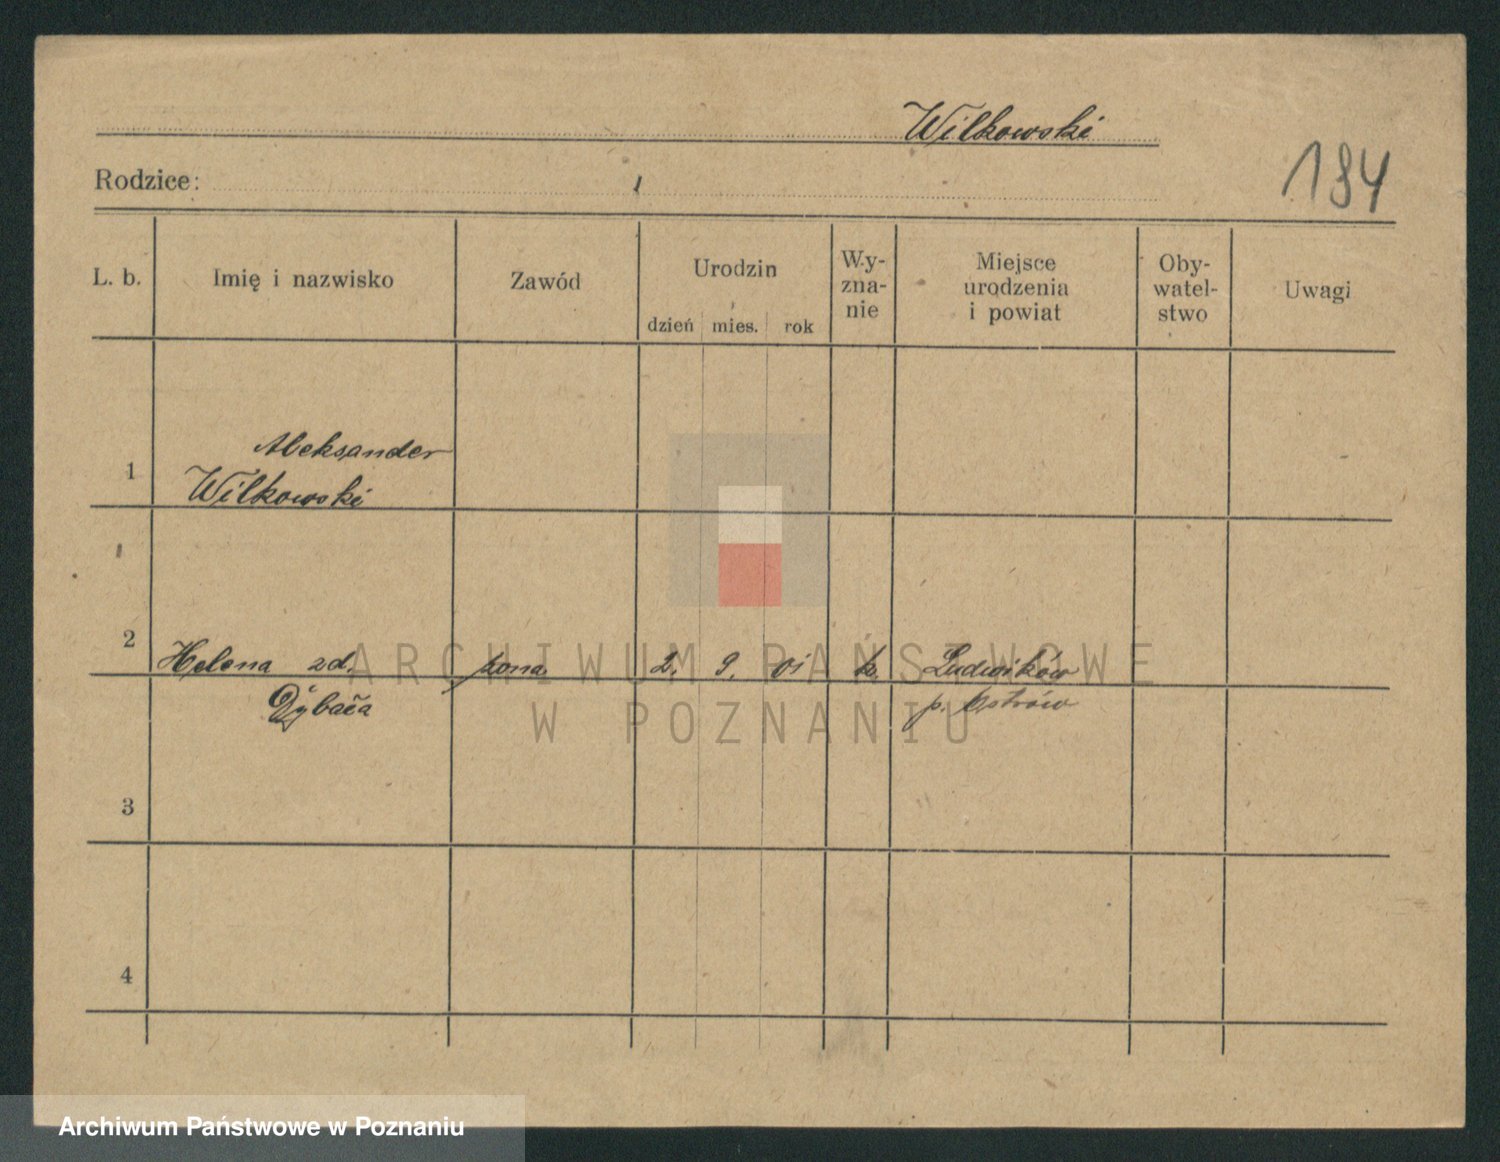 Wilkowski
184
Rodzice:
L. b.
Imię i nazwisko
Zawód
Urodzin
dzień mies. rok
Wy-
zna-
nie
Miejsce
urodzenia
i powiat
Oby-
watel-
stwo
Uwagi
1
Aleksander
Wilkowski
2
Helena zd. żona 2. 9. 01 k. Ludwików
p. Ostrów
3
4
ARCHIWUM PAŃSTWOWE
W POZNANIU
Archiwum Państwowe w Poznaniu